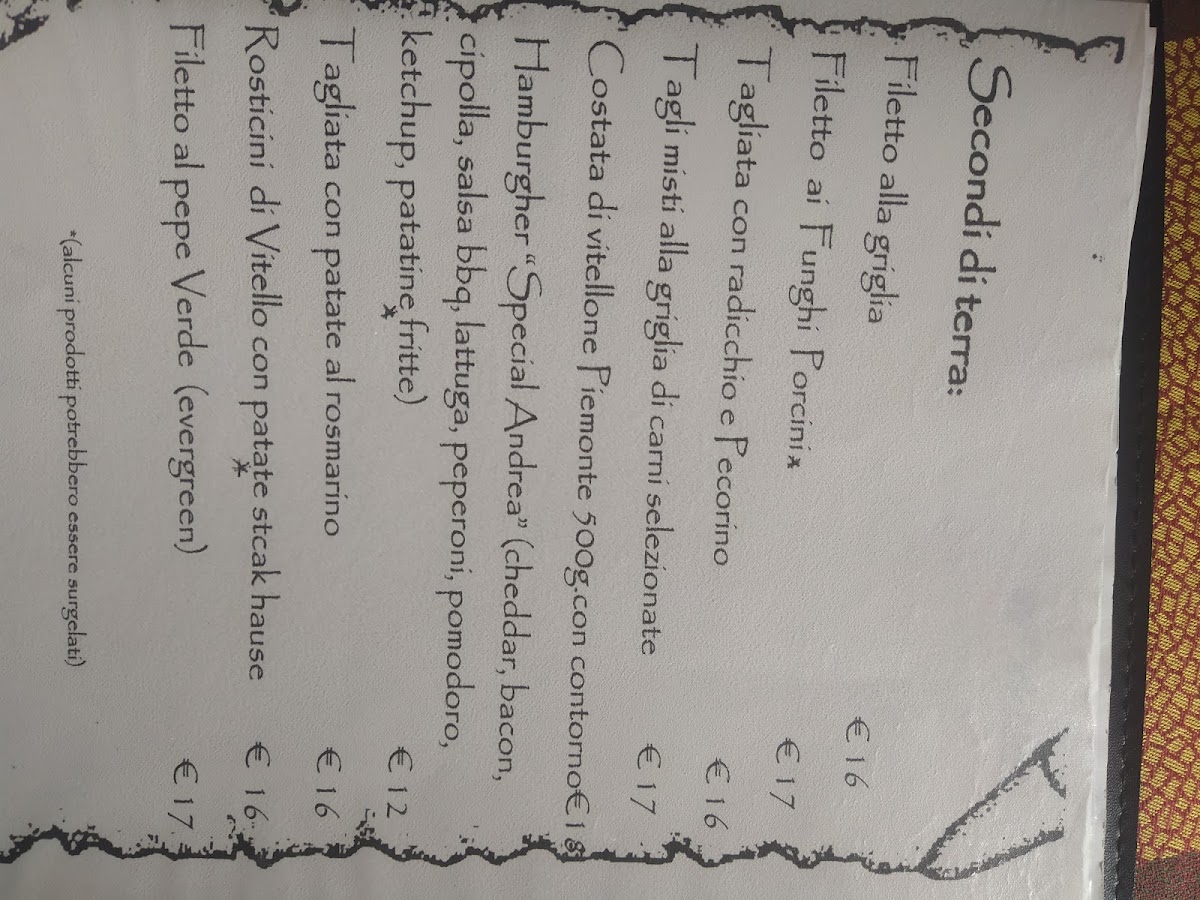 Secondi di terra:
Filetto alla griglia € 16
Filetto ai Funghi Porcini* € 17
Tagliata con radicchio e Pecorino € 16
Tagli misti alla griglia di carni selezionate € 17
Costata di vitellone Piemonte 500g.con contorno€18
Hamburgher “Special Andrea” (cheddar, bacon,
cipolla, salsa bbq, lattuga, peperoni, pomodoro,
ketchup, patatine* fritte) € 12
Tagliata con patate al rosmarino € 16
Rosticini di Vitello con patate* stcak hause € 16
Filetto al pepe Verde (evergreen) € 17
*(alcuni prodotti potrebbero essere surgelati)